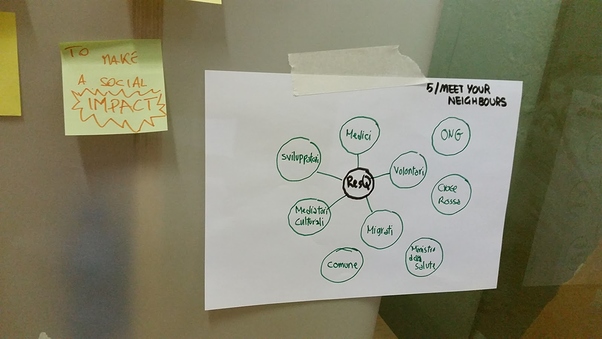 TO
MAKE
A SOCIAL
IMPACT
5/MEET YOUR
NEIGHBOURS
Medici
ONG
Sviluppatori
Volontari
ResQ
Croce
Rossa
Mediatori
Culturali
Migrati
Comune
Ministro
della
Salute